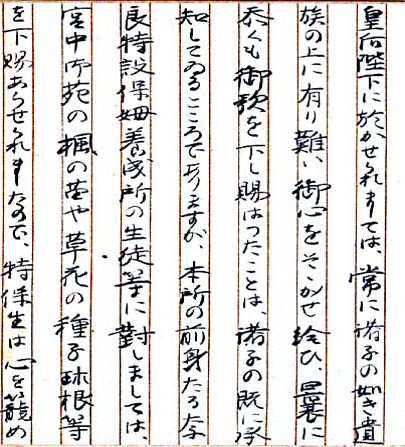 皇后陛下に於かせられましては、常に諸子の如き遺
族の上に有り難い御心をそゝがせ給ひ、曩に
忝くも御歌を下し賜はつたことは、諸子の既に承
知してゐるところでありますが、本所の前身たる奈
良特設保姆養成所の生徒等に對しましては、
宮中御苑の楓の苗や草花の種子球根等
を下賜あらせられましたので、特保生は心を籠め